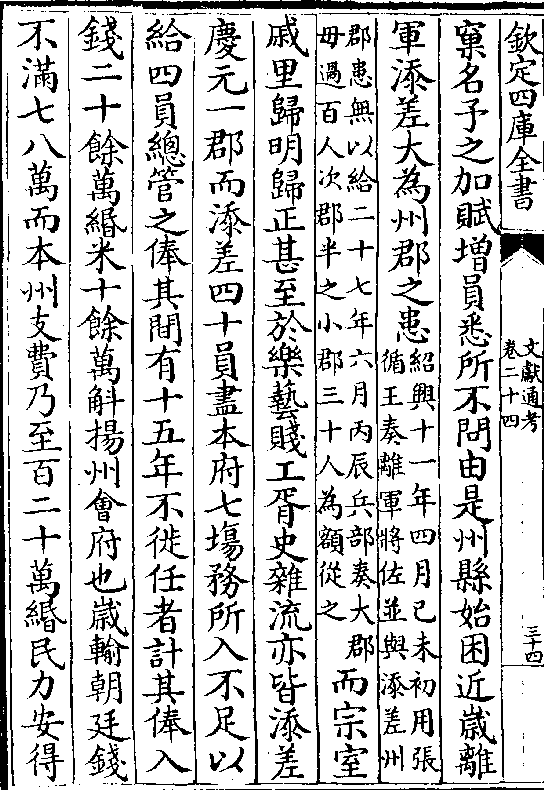 欽定四庫全書
文獻通考
卷二十四
三十四
窠名予之加賦增員悉所不問由是州縣始困近歲離
軍添差大為州郡之患
紹興十一年四月己未初用張
循王奏離軍將佐並與添差州
郡患無以給二十七年六月丙辰兵部奏大郡
毋過百人次郡半之小郡三十人為額從之
而宗室
戚里歸明歸正甚至於樂藝賤工胥史雜流亦皆添差
慶元一郡而添差四十員盡本府七塲務所入不足以
給四員總管之俸其間有十五年不徙任者計其俸入
錢二十餘萬緡米十餘萬斛揚州會府也歲輸朝廷錢
不滿七八萬而本州支費乃至百二十萬緡民力安得